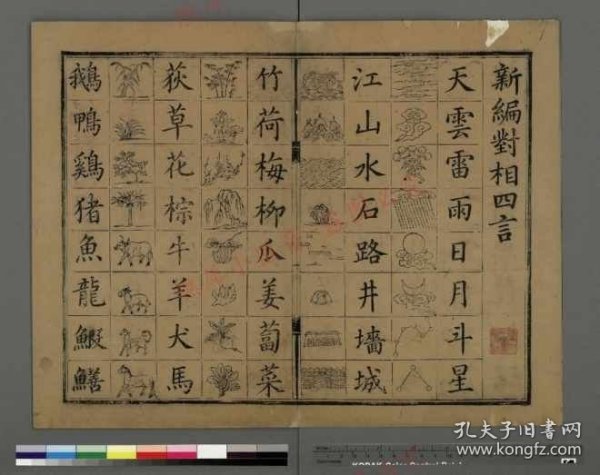 新編對相四言
天雲雷雨日月斗星
江山水石路井墻城
竹荷梅柳瓜姜蔔菜
荻草花棕牛羊犬馬
鵝鴨鷄猪魚龍鰕鱔
孔夫子旧書网
www.kongfz.com